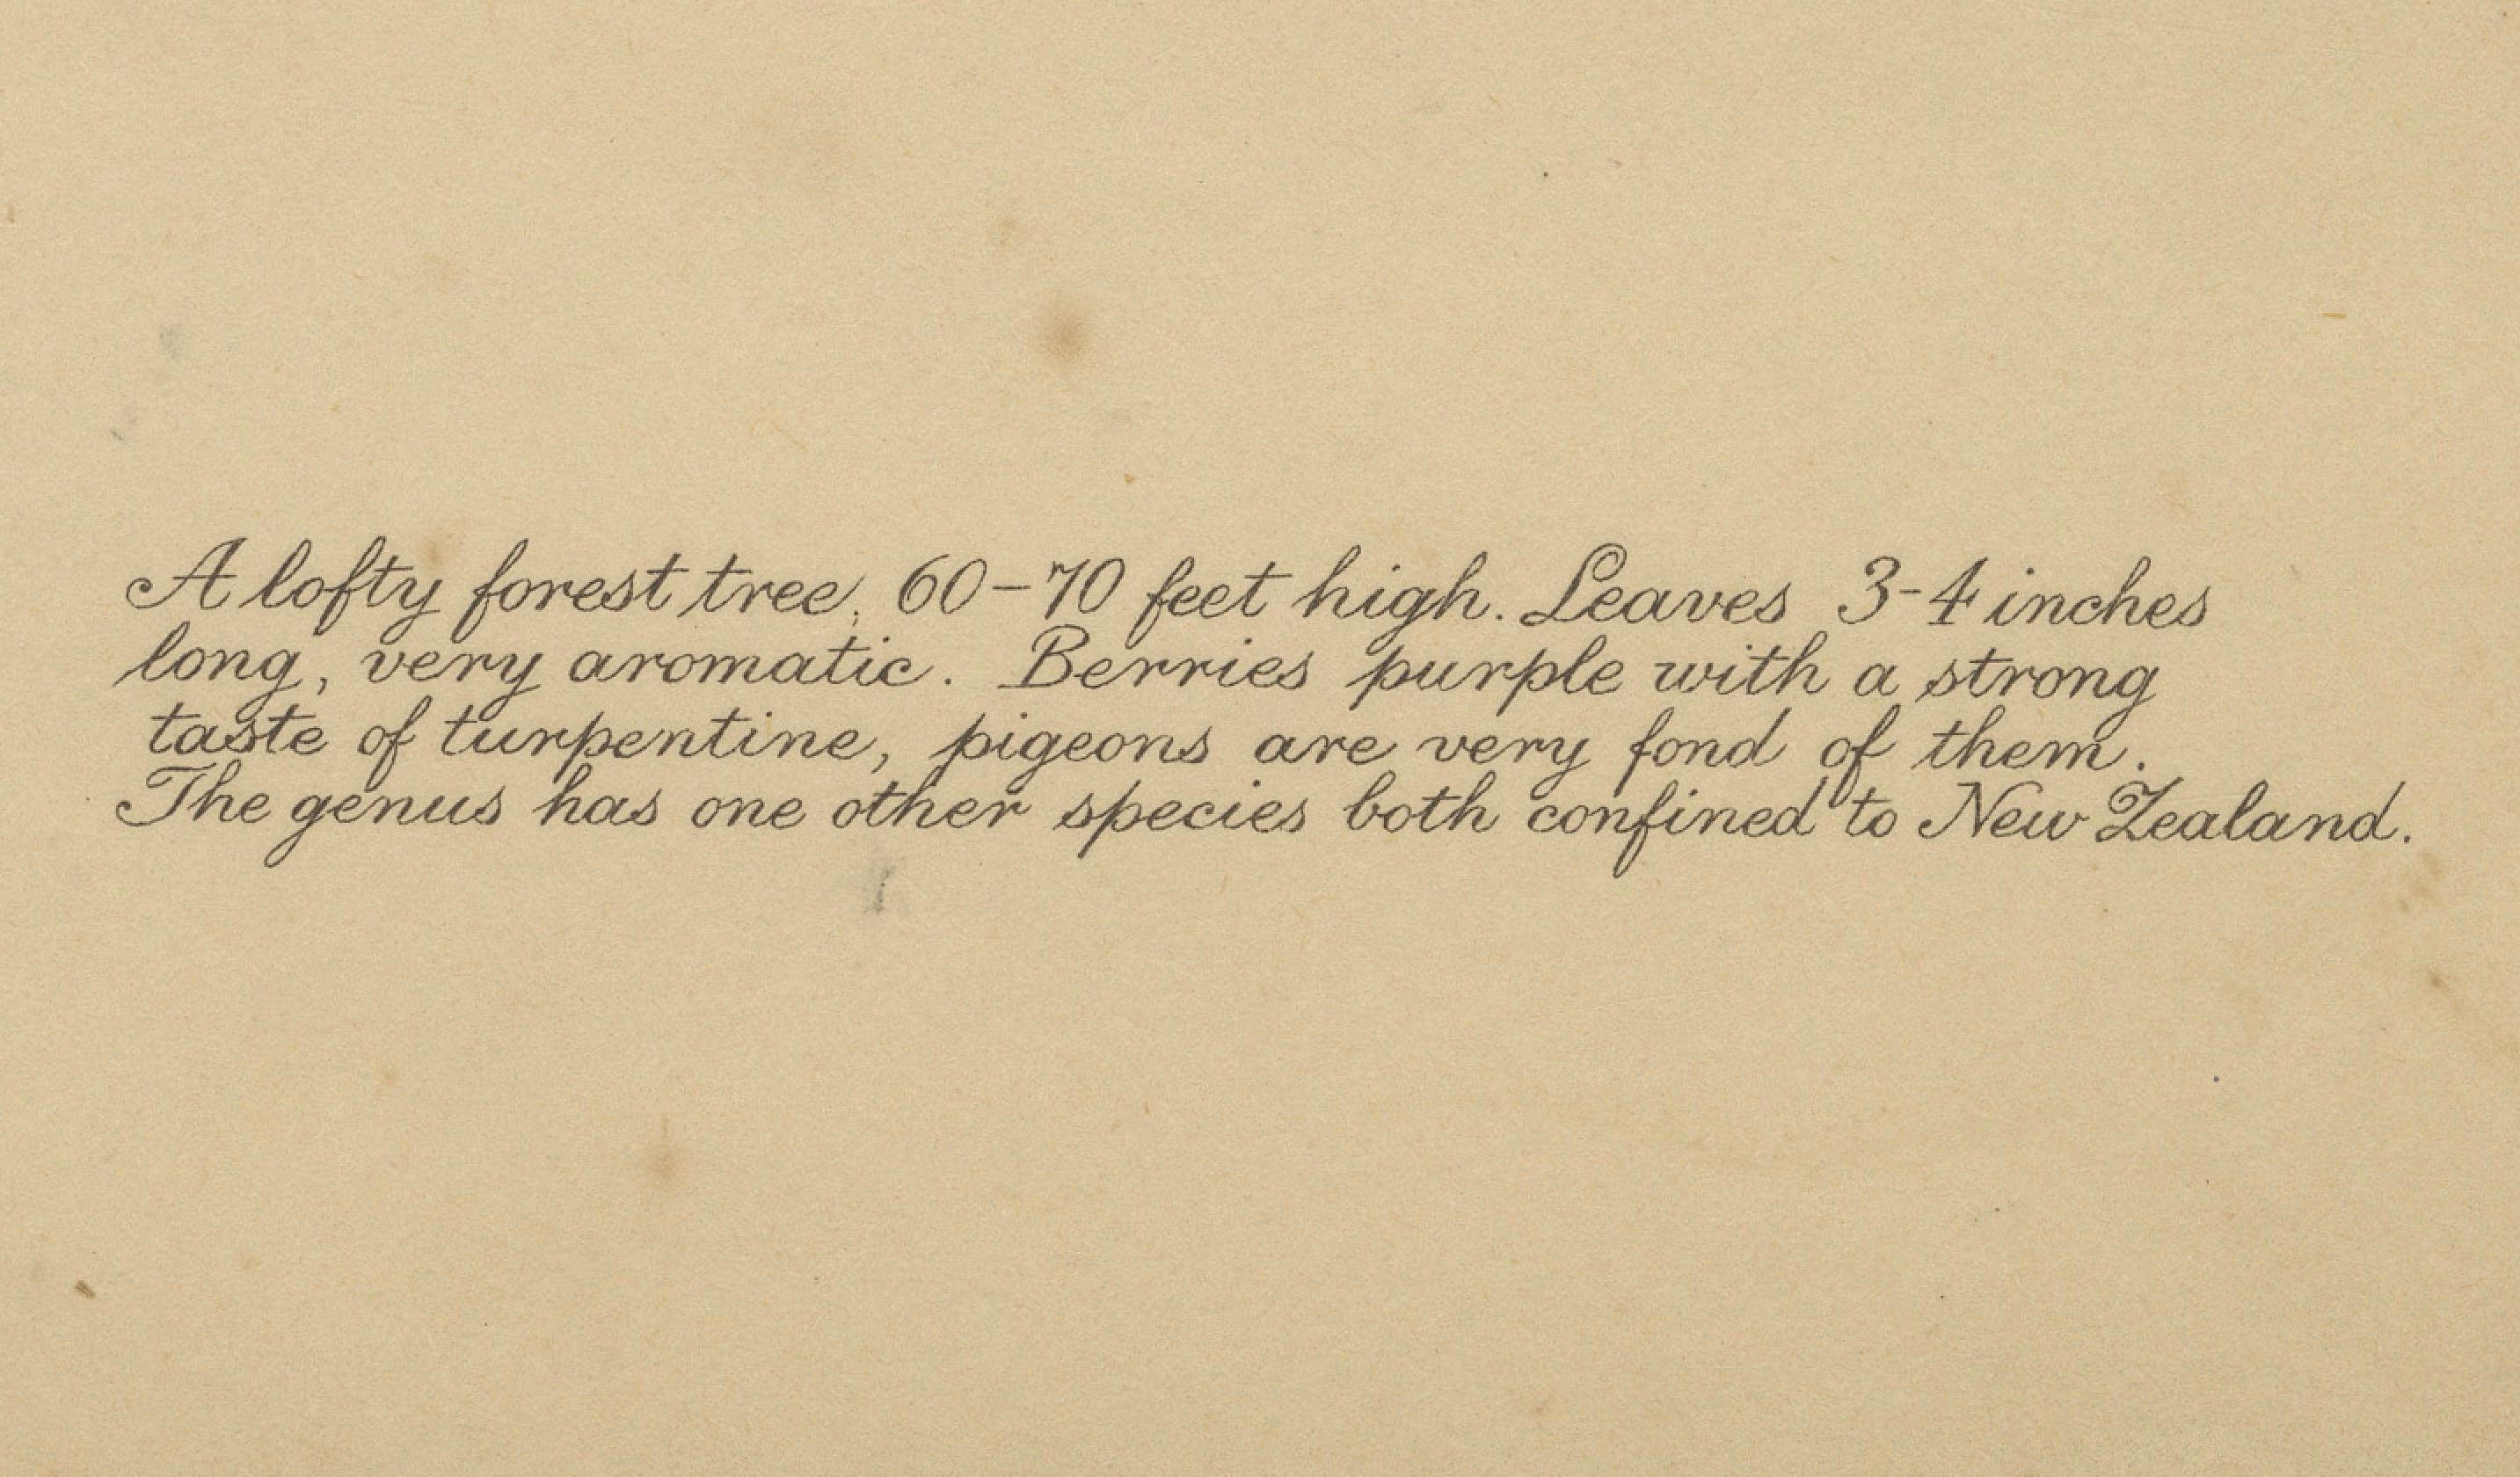 A lofty forest tree, 60-70 feet high. Leaves 3-4 inches
long, very aromatic. Berries purple with a strong
taste of turpentine, pigeons are very fond of them.
The genus has one other species both confined to New Zealand.